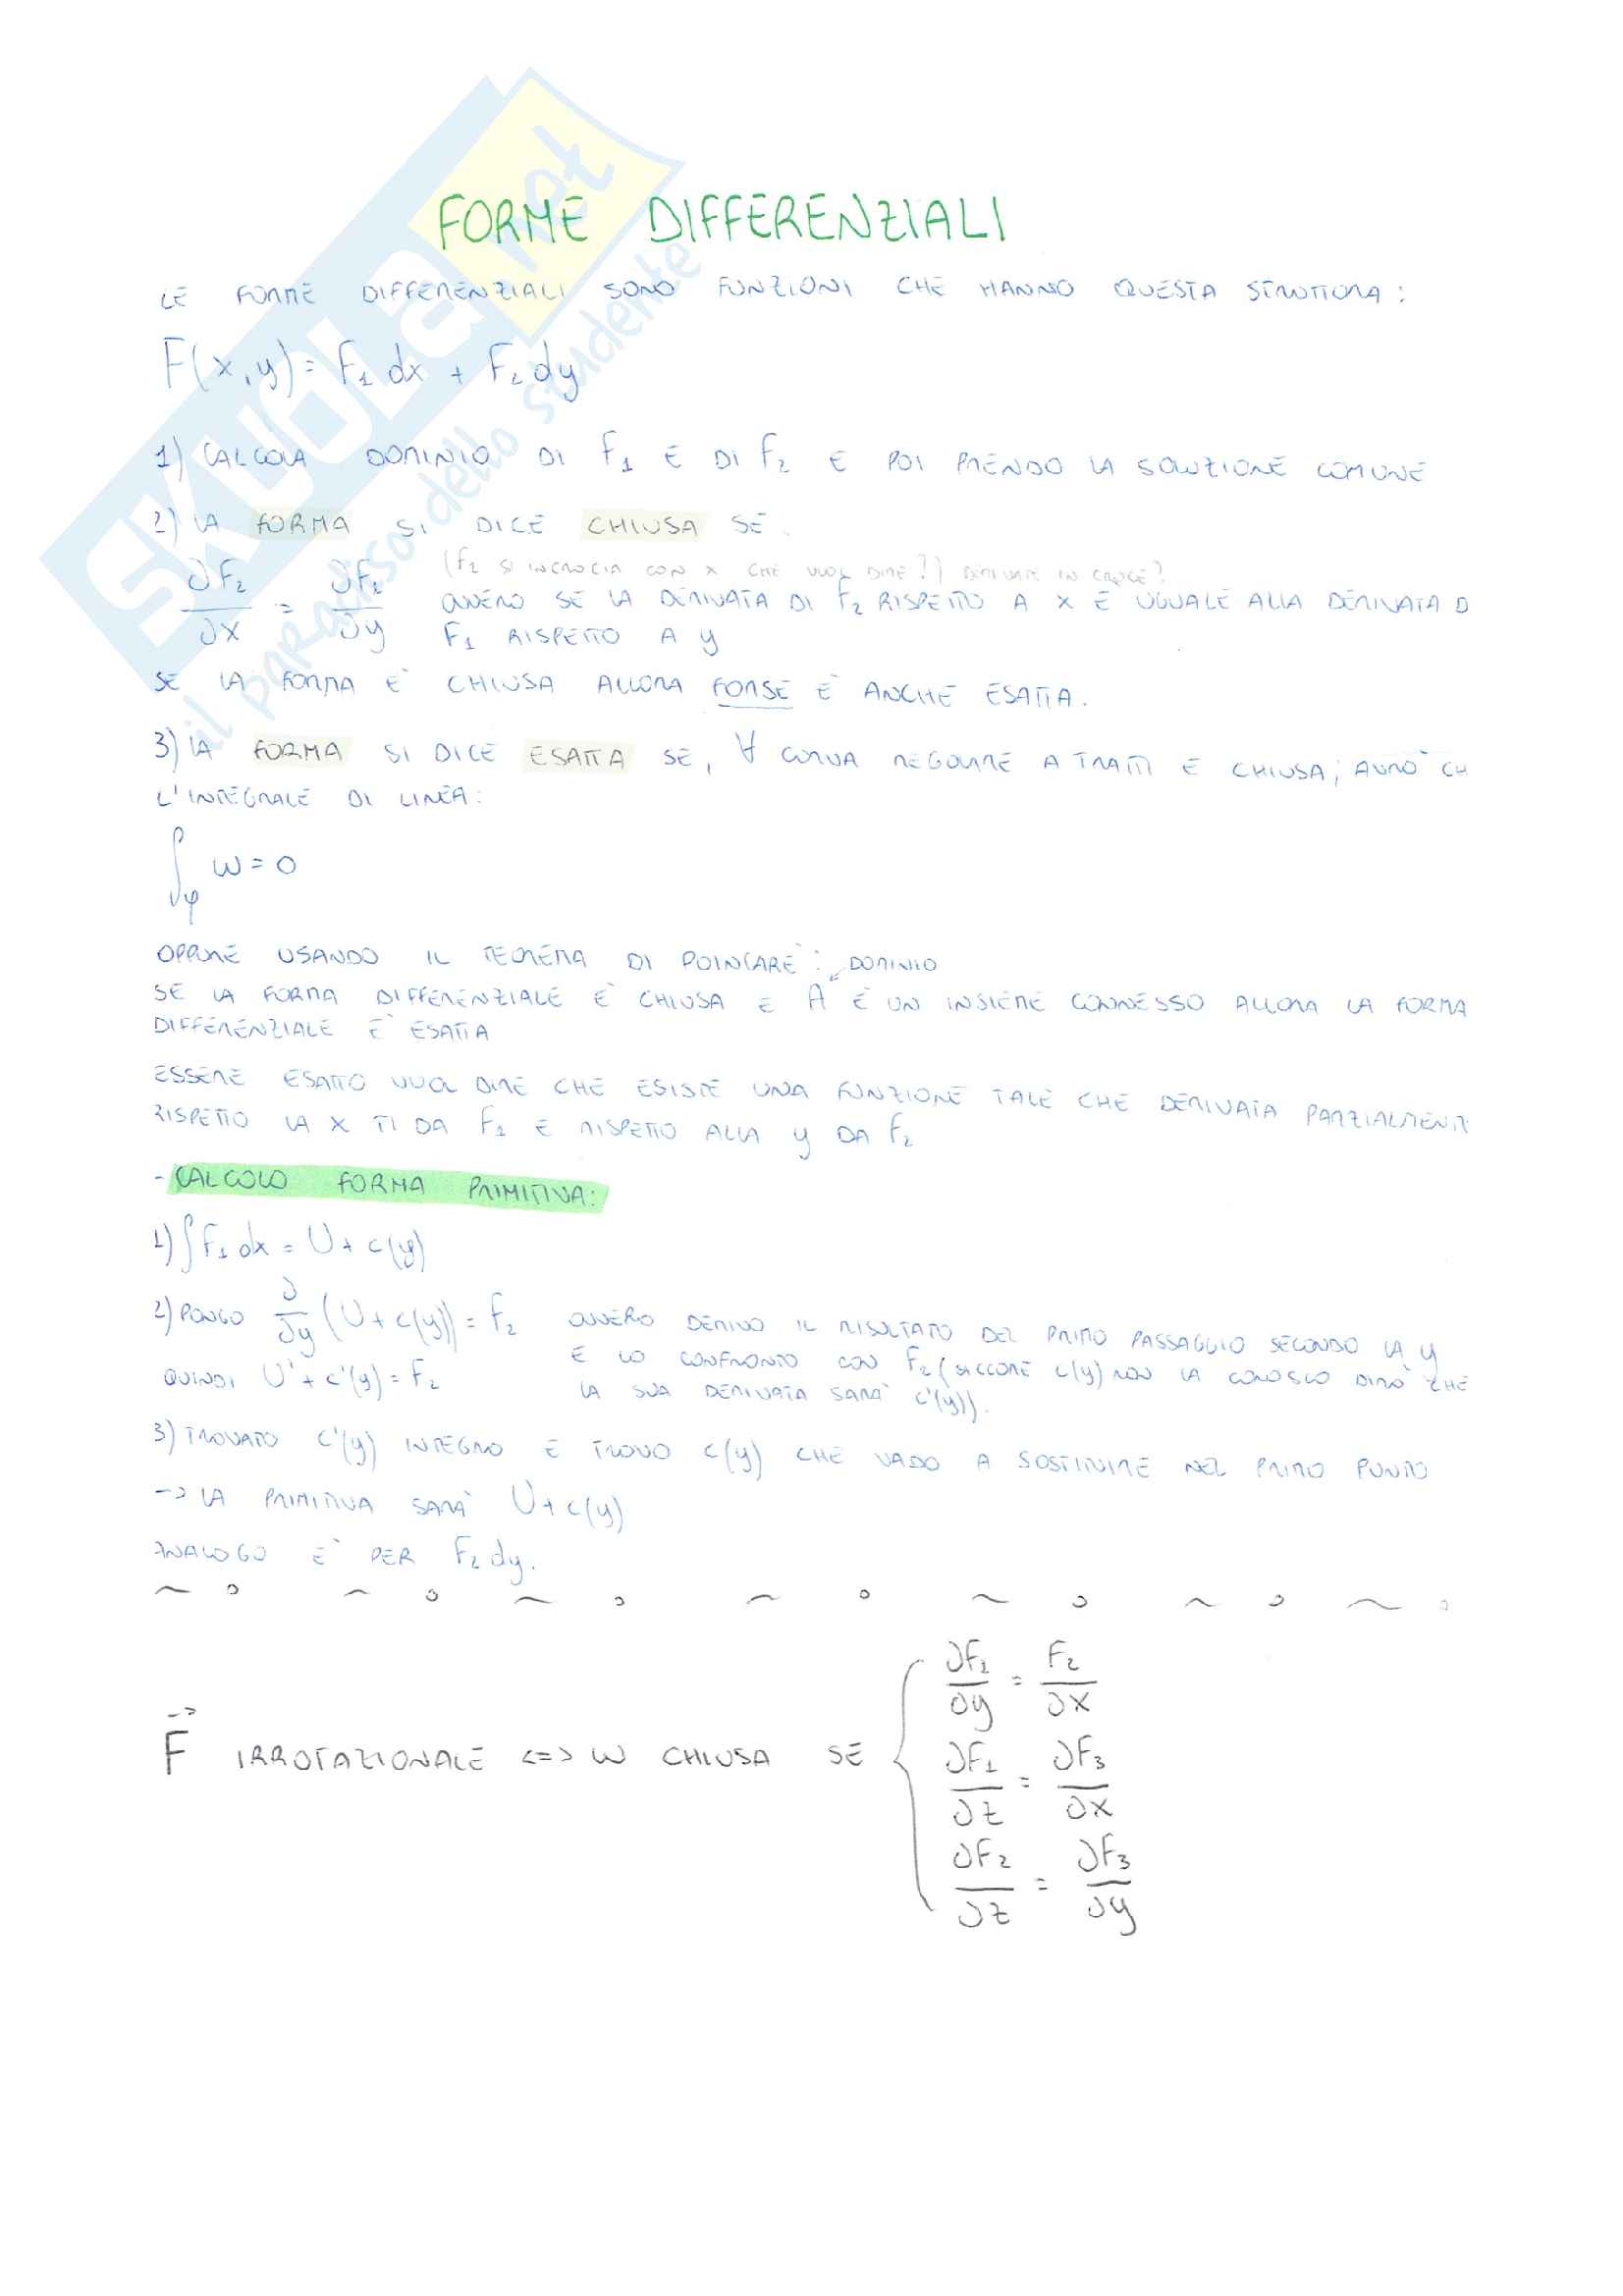 SKUOLA.net
il paradiso dello studente
FORME DIFFERENZIALI
LE FORME DIFFERENZIALI SONO FUNZIONI CHE HANNO QUESTA STRUTTURA:
F(x,y) = F₁ dx + F₂ dy
1) CALCOLA DOMINIO DI F₁ E DI F₂ E POI PRENDO LA SOLUZIONE COMUNE
2) LA FORMA SI DICE CHIUSA SE
(F₂ SI INCROCIA CON X CHE VUOL DIRE?) DERIVATE IN CROCE?
∂F₂/∂x = ∂F₁/∂y OVVERO SE LA DERIVATA DI F₂ RISPETTO A X È UGUALE ALLA DERIVATA D
F₁ RISPETTO A y
SE LA FORMA È CHIUSA ALLORA FORSE È ANCHE ESATTA.
3) LA FORMA SI DICE ESATTA SE, ∀ CURVA REGOLARE A TRATTI E CHIUSA, AVRÒ CH
L'INTEGRALE DI LINEA:
∫φ ω = 0
OPPURE USANDO IL TEOREMA DI POINCARÈ: DOMINIO
SE LA FORMA DIFFERENZIALE È CHIUSA E A È UN INSIEME CONNESSO ALLORA LA FORMA
DIFFERENZIALE È ESATTA
ESSERE ESATTO VUOL DIRE CHE ESISTE UNA FUNZIONE TALE CHE DERIVATA PARZIALMENT
RISPETTO LA X TI DA F₁ E RISPETTO ALLA y DA F₂
- CALCOLO FORMA PRIMITIVA:
1) ∫F₁ dx = U + c(y)
2) PONGO ∂/∂y (U + c(y)) = F₂ OVVERO DERIVO IL RISULTATO DEL PRIMO PASSAGGIO SECONDO LA y
E LO CONFRONTO CON F₂ (SICCOME c(y) NON LA CONOSCO DIRÒ CHE
QUINDI U' + c'(y) = F₂ LA SUA DERIVATA SARÀ c'(y)).
3) TROVATO c'(y) INTEGRO E TROVO c(y) CHE VADO A SOSTITUIRE NEL PRIMO PUNTO
-> LA PRIMITIVA SARÀ U + c(y)
ANALOGO È PER F₂ dy.
∂F₁/∂y = F₂/∂x
F⃗ IRROTAZIONALE <=> ω CHIUSA SE { ∂F₁/∂z = ∂F₃/∂x
∂F₂/∂z = ∂F₃/∂y